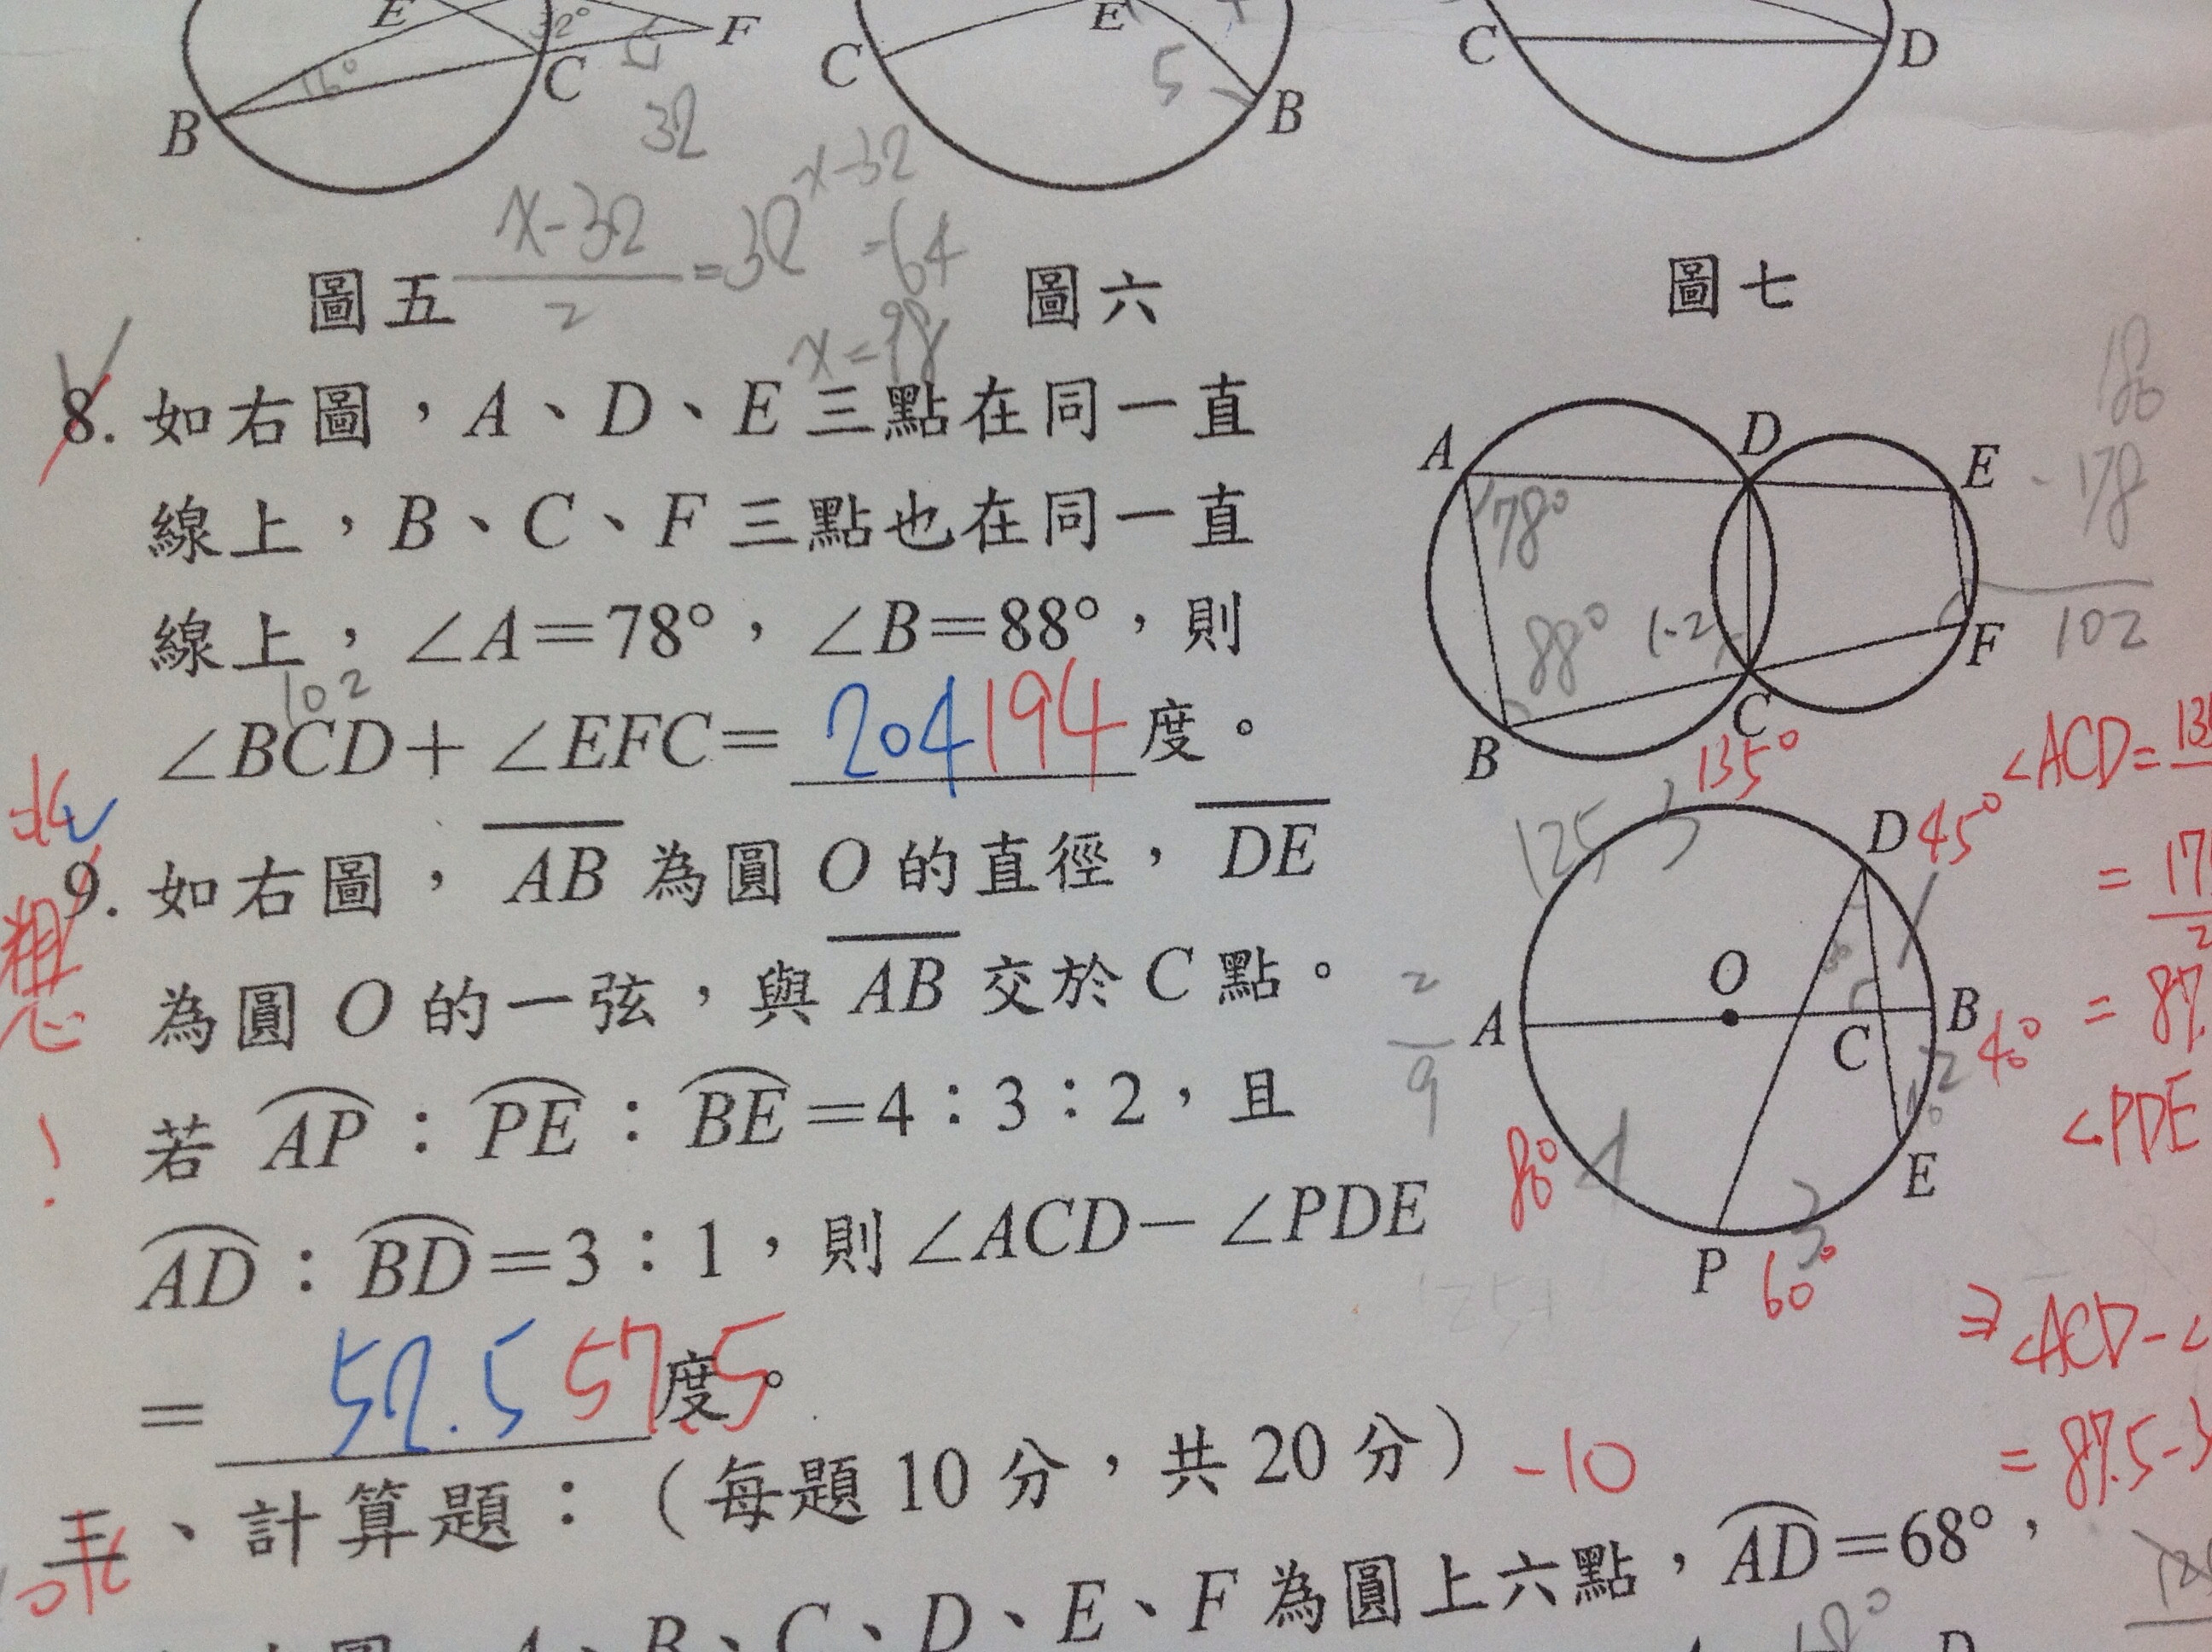 E 32° F C E 5 C D
B 16° C 32 B
x-32
x-32
2
=32 =64
圖五 圖六 圖七
x=98
8. 如右圖，A、D、E三點在同一直
線上，B、C、F三點也在同一直
線上，∠A=78°，∠B=88°，則
102
∠BCD+∠EFC=204 194度。
A D E
78°
88°
B C F
180
-178
102
9. 如右圖，AB為圓O的直徑，DE
為圓O的一弦，與AB交於C點。
若AP：PE：BE=4：3：2，且
AD：BD=3：1，則∠ACD-∠PDE
=52.5 57.5度。
粗心！
135°
125 3
D 45°
O
A C B 40°
2
9
80° 4
E
P 3
60°
∠ACD=
=
2
=87.
∠PDE
⇒∠ACD-∠
=87.5-3
三、計算題：（每題10分，共20分）-10
A、B、C、D、E、F為圓上六點，AD=68°，